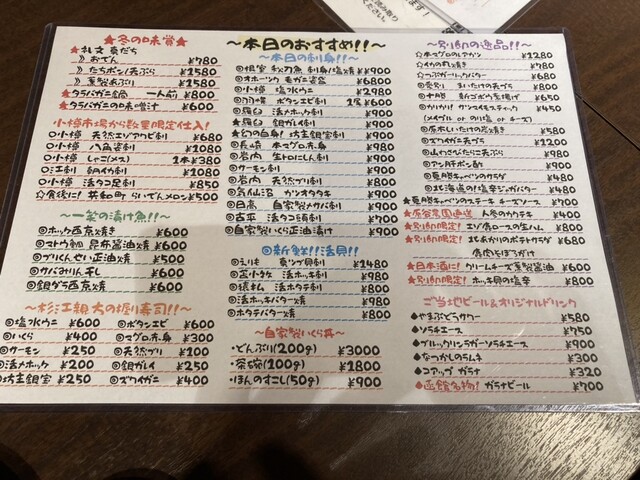 ★冬の味覚★
★礼文 真だち
》おでん ¥780
》たちポン/天ぷら ¥1580
》裏製あぶり ¥1580
★タラバガニ鍋 一人前 ¥800
★タラバガニの味噌汁 ¥680
小樽市場から数量限定仕入!
○小樽 天然エゾアワビ刺 ¥1080
○小樽 八角姿刺 ¥1080
○小樽 しゃこ(メス) 1本¥380
○江刺 朝イカ刺 ¥1080
○小樽 活タコ足刺 ¥850
☆食後に!共和町 らいでんメロン ¥500
～一笑の漬け魚!!～
◎ホッケ西京焼き ¥600
◎マトウ鯛 昆布醤油焼 ¥600
◎ブリくんせい正油焼 ¥500
◎サバみりん干し ¥600
◎銀ダラ西京焼 ¥600
～杉江親大の握り寿司!!～
◎塩水ウニ ¥600
◎いくら ¥400
◎サーモン ¥250
◎活メホッケ ¥200
◎坊主銀宝 ¥250
◎ボタンエビ ¥600
◎マグロ赤身 ¥300
◎天然ブリ ¥100
◎銀ガレイ ¥200
◎ズワイガニ ¥400
～本日のおすすめ!!～
～本日の刺身!!～
◎根室 秋刀魚 刺身/塩焼 ¥900
◎オホーツク 毛ガニ姿盛 ¥6800
◎小樽 塩水ウニ ¥2980
◎羽幌 ボタンエビ刺 1尾 ¥600
◎羅臼 活メホッケ刺 ¥900
★羅臼 銀ガレイ刺 ¥900
★幻の白身! 坊主銀宝刺 ¥900
◎長崎 本マグロ赤身 ¥900
◎岩内 生トロにしん刺 ¥900
◎サーモン刺 ¥900
◎岩内 天然ブリ刺 ¥900
◎気仙沼 カツオタタキ ¥900
◎日高 自家製〆サバ刺 ¥900
◎古平 活タコ頭刺 ¥700
◎自家製いくら正油漬け ¥900
◎新鮮!!活貝!!
◎えりも 真ツブ貝刺 ¥1480
◎苫小牧 活ホッキ刺 ¥980
◎猿払 活ホタテ刺 ¥980
◎活ホッキバター焼 ¥980
◎ホタテバター焼 ¥980
～自家製いくら丼～
・どんぶり(200g) ¥3000
・茶碗(100g) ¥1800
・ほんのすこし(50g) ¥900
☆本マグロのレアカツ ¥1280
☆イカの丸焼き
☆つぶガーリックバター ¥680
☆愛別 まいたけの天ぷら
☆十勝 新ゴボウ素揚げ ¥650
☆カリカリ ケンコイモスティック ¥450
(メイプル or のり塩 or チーズ)
☆原木しいたけの炭焼き ¥580
☆ズワイガニ天プラ ¥580
☆山わさびたらこ天ぷら ¥580
☆アンチポテン酢 ¥500
☆夏勝キャベツのサラダ ¥500
☆北海道の塩辛ジャガバター ¥480
★夏勝キャベツのステーキ チーズソース ¥780
★原発農園直送 人参のカクテキ ¥400
★別he限定! エゾ鹿ロースの生ハム ¥800
★別he限定! 北あかりのポテトサラダ ¥680
鹿肉そぼろがけ
★日本酒に! クリームチーズ裏製醤油 ¥600
★別he限定! ホッキ貝の塩辛 ¥680
ご当地ビール&オリジナルドリンク
♠やまぶどうサワー ¥580
♠ソラチエース ¥750
♠ブルックリンラガーソラチエース ¥900
♠なつかしのラムネ ¥300
♠コアップ ガラナ ¥350
♠函館名物! ガラナビール ¥700